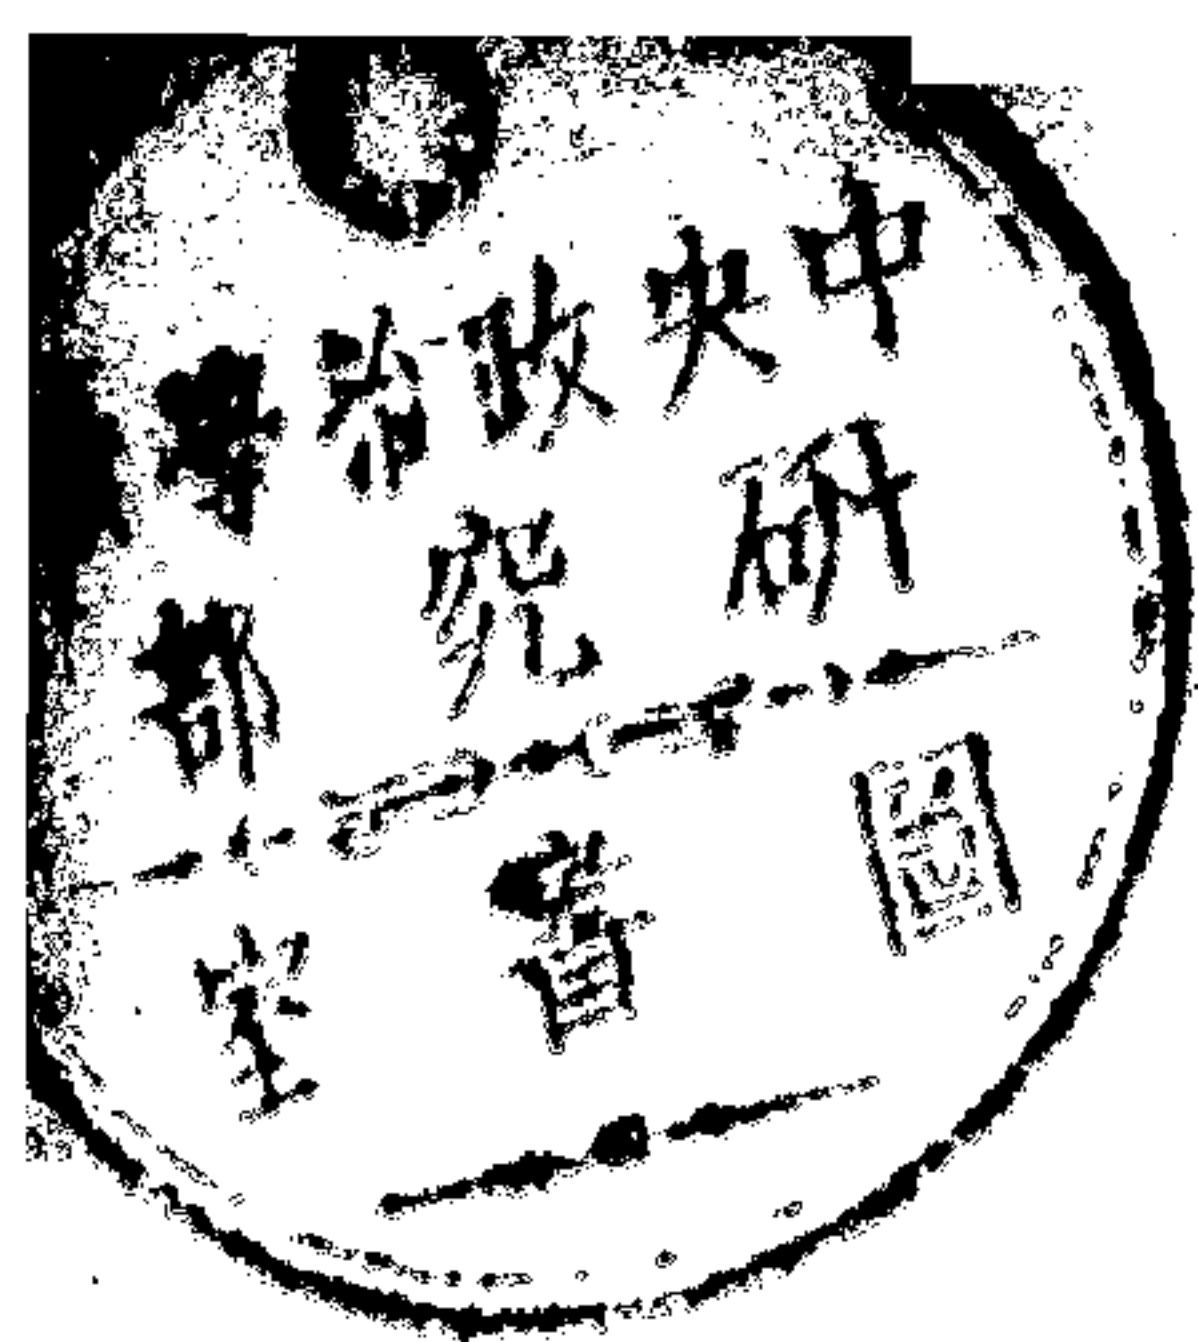 中央政治學
研究部
圖書室